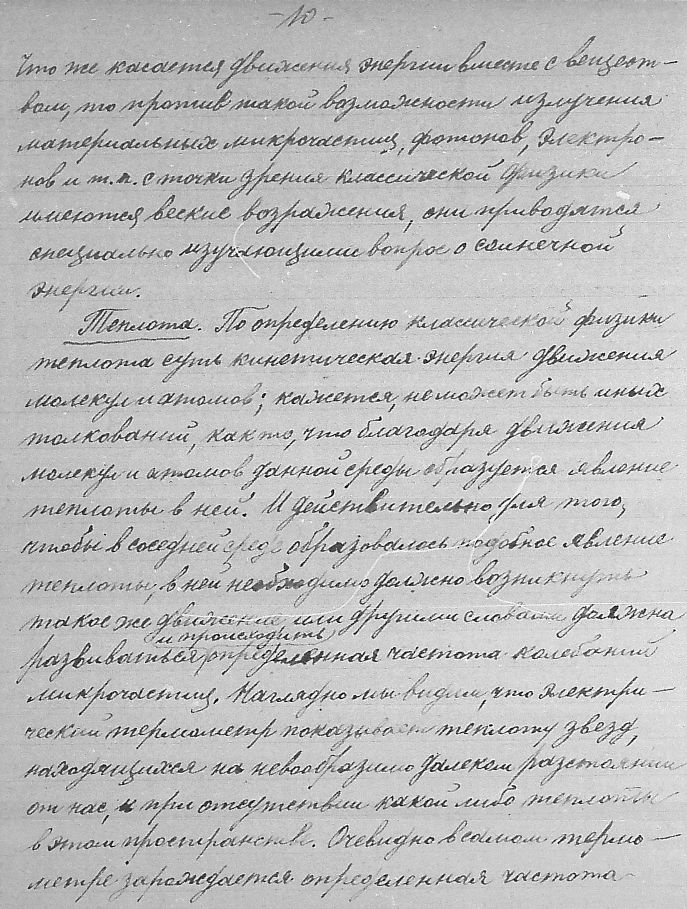 -10-
Что же касается движения энергии вместе с вещест-
вом, то против такой возможности излучения
материальных микрочастиц, фотонов, электро-
нов и т.п. с точки зрения классической физики
имеются веские возражения, они приводятся
специально изучающими вопрос о солнечной
энергии.
Теплота. По определению классической физики
теплота суть кинетическая энергия движения
молекул и атомов; кажется, не может быть иных
толкований, как то, что благодаря движения
молекул и атомов данной среды образуется явление
теплоты в ней. И действительно для того,
чтобы в соседней среде образовалось подобное явление
теплоты, в ней необходимо должно возникнуть
такое же движение или другими словами должна
и происходить
развиваться определенная частота колебаний
микрочастиц. Наглядно мы видим, что электри-
ческий термометр показывает теплоту звезд,
находящихся на невообразимо далеком разстоянии
от нас, и при отсутствии какой либо теплоты
в этом пространстве. Очевидно в самом термо-
метре зарождается определенная частота